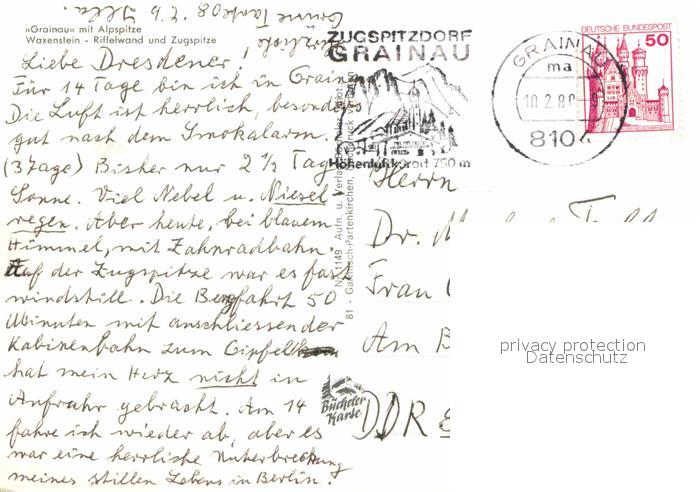 »Grainau« mit Alpspitze
Waxenstein - Riffelwand und Zugspitze
Liebe Dresdener!
Für 14 Tage bin ich in Grainau
Die Luft ist herrlich, besonders
gut nach dem Smokalarm.
(3 Tage) Bisher nur 2 1/2 Tage
Sonne. Viel Nebel u. Niesel
regen. Aber heute, bei blauem
Himmel, mit Zahnradbahn.
Auf der Zugspitze war es fast
windstill. Die Bergfahrt 50
Minuten mit anschliessender
Kabinenbahn zum Gipfel
hat mein Herz nicht in
Aufruhr gebracht. Am 14
fahre ich wieder ab, aber es
war eine herrliche Unterbrechung
meines stillen Lebens in Berlin.
ZUGSPITZDORF
GRAINAU
Höhenluftkurort 750 m
GRAINAU
ma
10.2.80
8104
DEUTSCHE BUNDESPOST
50
NA 1149 Aufn. u. Verlag
81 - Garmisch-Partenkirchen,
Bücheler
Karte
Herrn
Dr.
Frau
Am B
DDR
privacy protection
Datenschutz